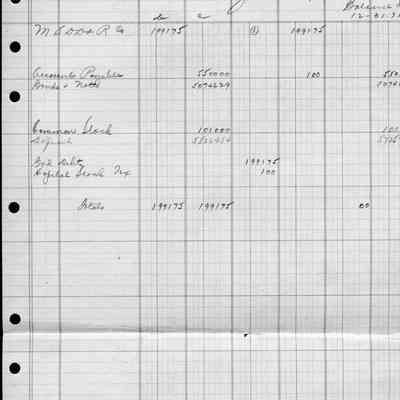 Balance
dr cr 12-31-
M & DD & R Co 199175 (1) 199175
Accounts Payable 550000 100 550
Bonds & Notes 5074629
Common Stock 101000 100
Deficit
Bad Debts 199175
Capital Stock Tax 100
Totals 199175 199175 00